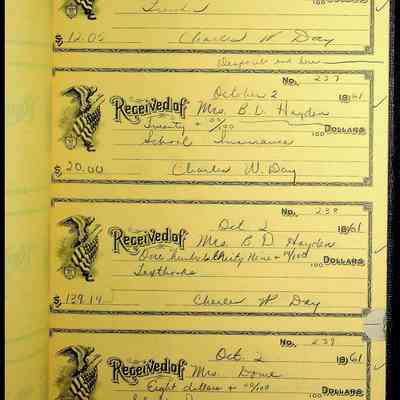 100
$ 12.05 Charles W Day
No. 237
October 2 1961
Received of Mrs. B. D. Hayden
Twenty + 00/100 Dollars
School Insurance
$ 20.00 Charles W. Day
No. 238
Oct 2 1961
Received of Mrs B D Hayden
One hundred thirty Nine + 14/100 Dollars
Textbooks
$ 139.14 Charles W Day
No. 239
Oct. 2 1961
Received of Mrs. Dome
Eight dollars + 00/100 Dollars